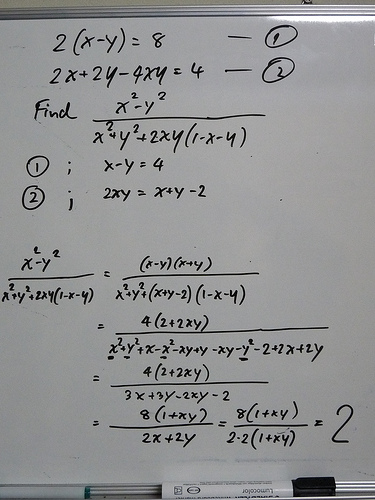 2(x-y) = 8 — ①
2x+2y-4xy = 4 — ②
Find (x²-y²)/(x²+y²+2xy(1-x-y))
① ; x-y = 4
② ; 2xy = x+y-2
(x²-y²)/(x²+y²+2xy(1-x-y)) = ((x-y)(x+y))/(x²+y²+(x+y-2)(1-x-y))
= (4(2+2xy))/(x²+y²+x-x²-xy+y-xy-y²-2+2x+2y)
= (4(2+2xy))/(3x+3y-2xy-2)
= (8(1+xy))/(2x+2y) = (8(1+xy))/(2·2(1+xy)) = 2
Lumocolor